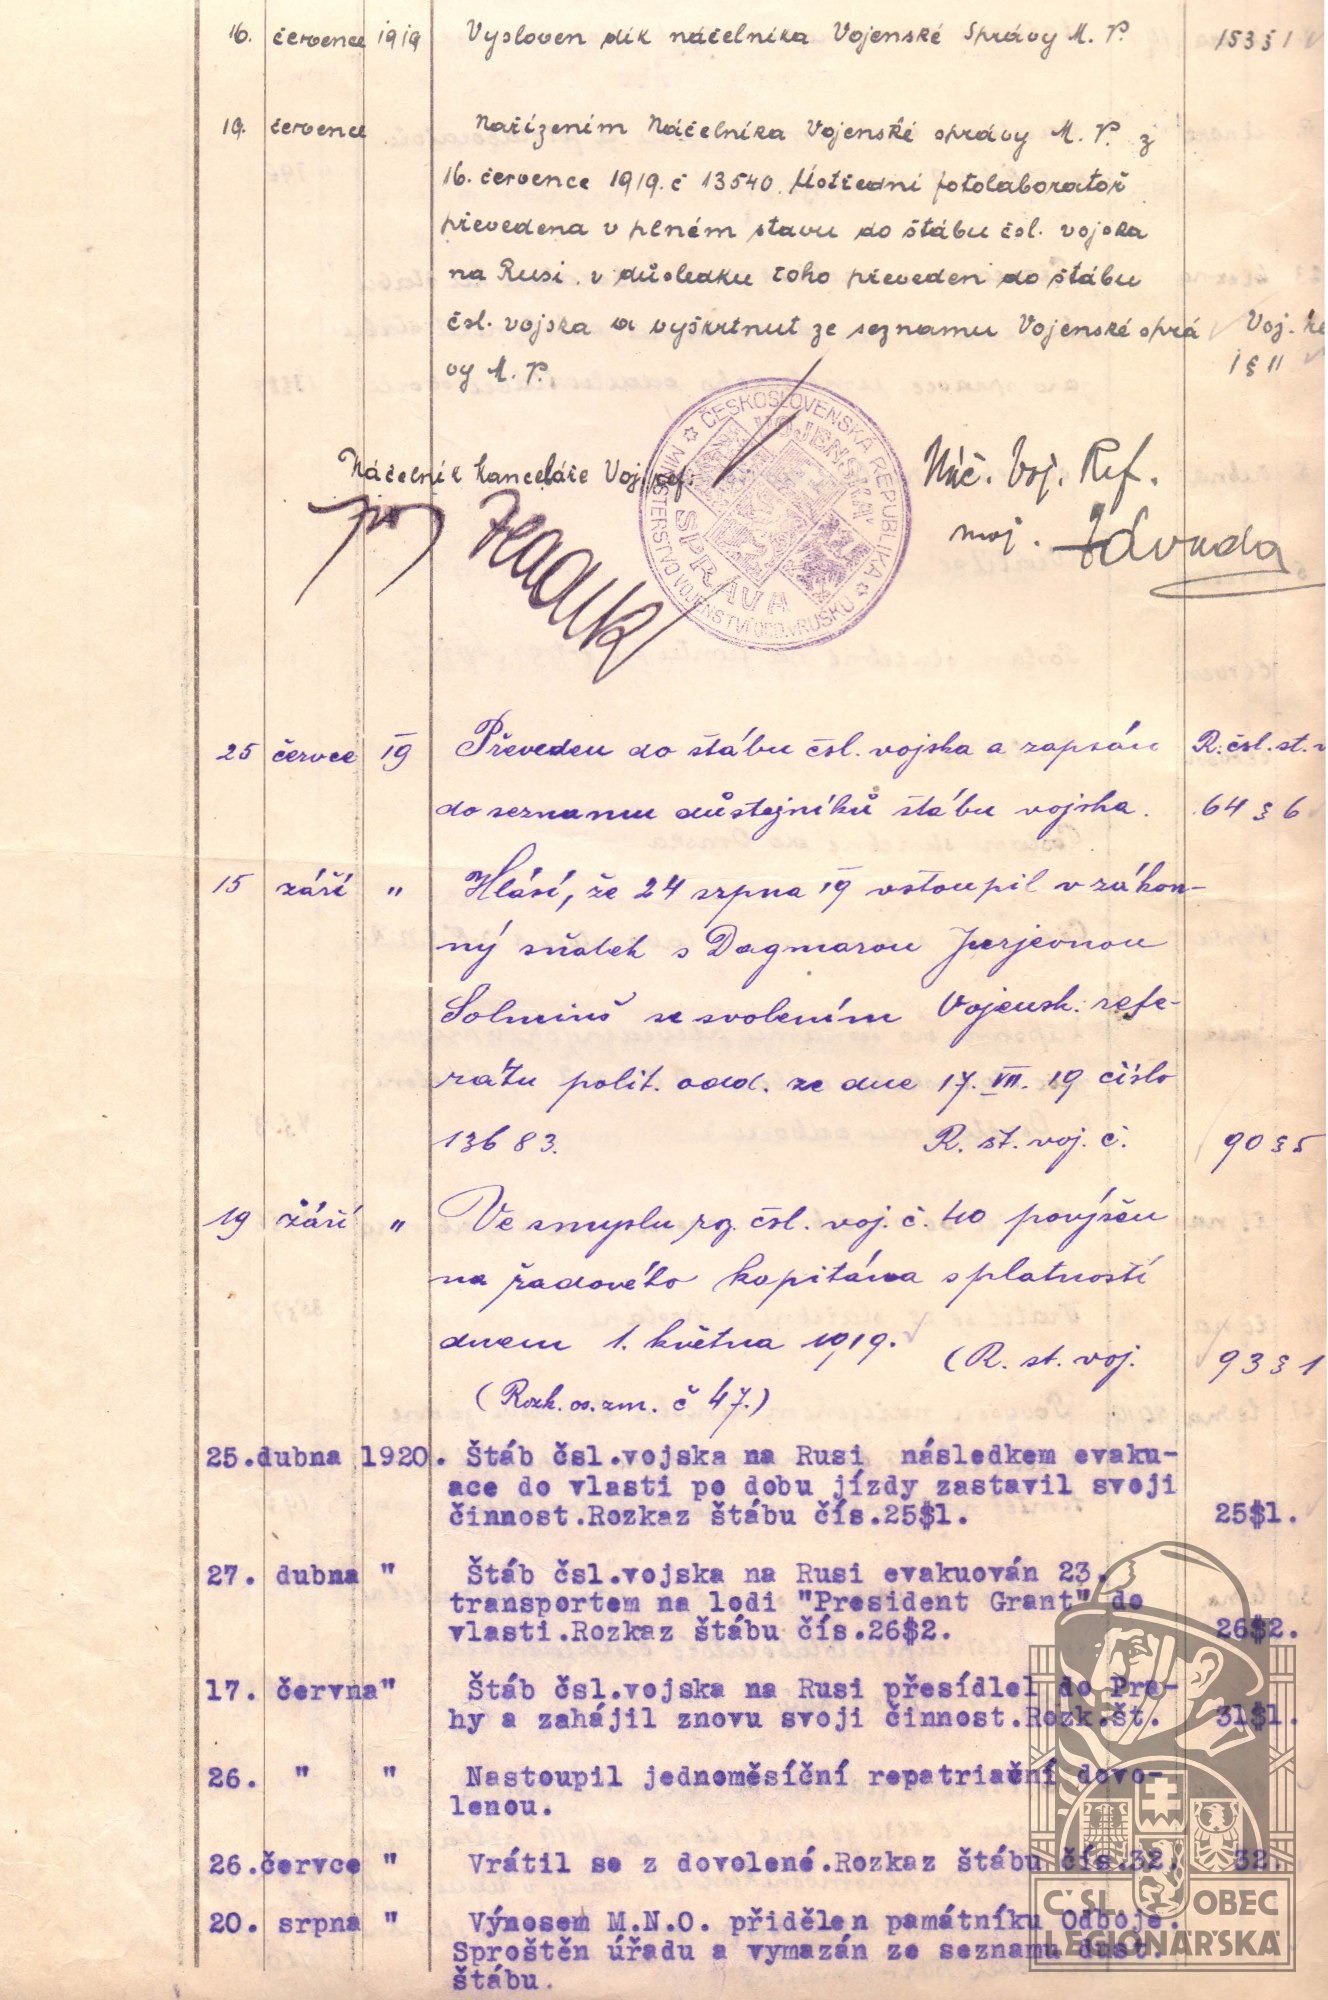 16. července 1919 Vysloven dík náčelníka Vojenské Správy M. V. 153 § 1
19. července Nařízením Náčelníka Vojenské správy M. V. z
16. července 1919. č 13540. Ústřední fotolaboratoř
převedena v plném stavu do štábu čsl. vojska
na Rusi. v důsledku toho převeden do štábu
čsl. vojska a vyškrtnut ze seznamu Vojenské sprá Voj.
vy M. V. 1 § 11
Náčelník kanceláře Voj. ref. Náč. Voj. Ref.
maj.
ČESKOSLOVENSKÁ REPUBLIKA
MINISTERSTVO VOJENSTVÍ ODD. V RUSKU
VOJENSKÁ
SPRÁVA
25 červce 19 Převeden do štábu čsl. vojska a zapsán R. čsl. st. v
do seznamu důstojníků štábu vojska. 64 § 6
15 září " Hlásí, že 24 srpna 19 vstoupil v zákon-
ný sňatek s Dagmarou Jurjevnou
se svolením Vojensk. refe-
rátu polit. odd. ze dne 17. VII. 19 číslo
13683. R. št. voj. č. 90 § 5
19 září " Ve smyslu rz. čsl. voj. č. 40 povýšen
na řadového kapitána s platností
dnem 1. května 1919. (R. st. voj. 93 § 1
(Rozk. os. zm. č 47.)
25. dubna 1920. Štáb čsl.vojska na Rusi následkem evaku-
ace do vlasti po dobu jízdy zastavil svoji
činnost.Rozkaz štábu čís.25$1. 25$1.
27. dubna " Štáb čsl.vojska na Rusi evakuován 23.
transportem na lodi "President Grant" do
vlasti.Rozkaz štábu čís.26$2. 26$2.
17. června " Štáb čsl.vojska na Rusi přesídlel do Pra-
hy a zahájil znovu svoji činnost.Rozk.št. 31$1.
26. " " Nastoupil jednoměsíční repatriační dovo-
lenou.
26. červce " Vrátil se z dovolené.Rozkaz štábu čís.32. 32.
20. srpna " Výnosem M.N.O. přidělen památníku Odboje.
Sproštěn úřadu a vymazán ze seznamu dust.
štábu.
ČSL. OBEC
LEGIONÁŘSKÁ